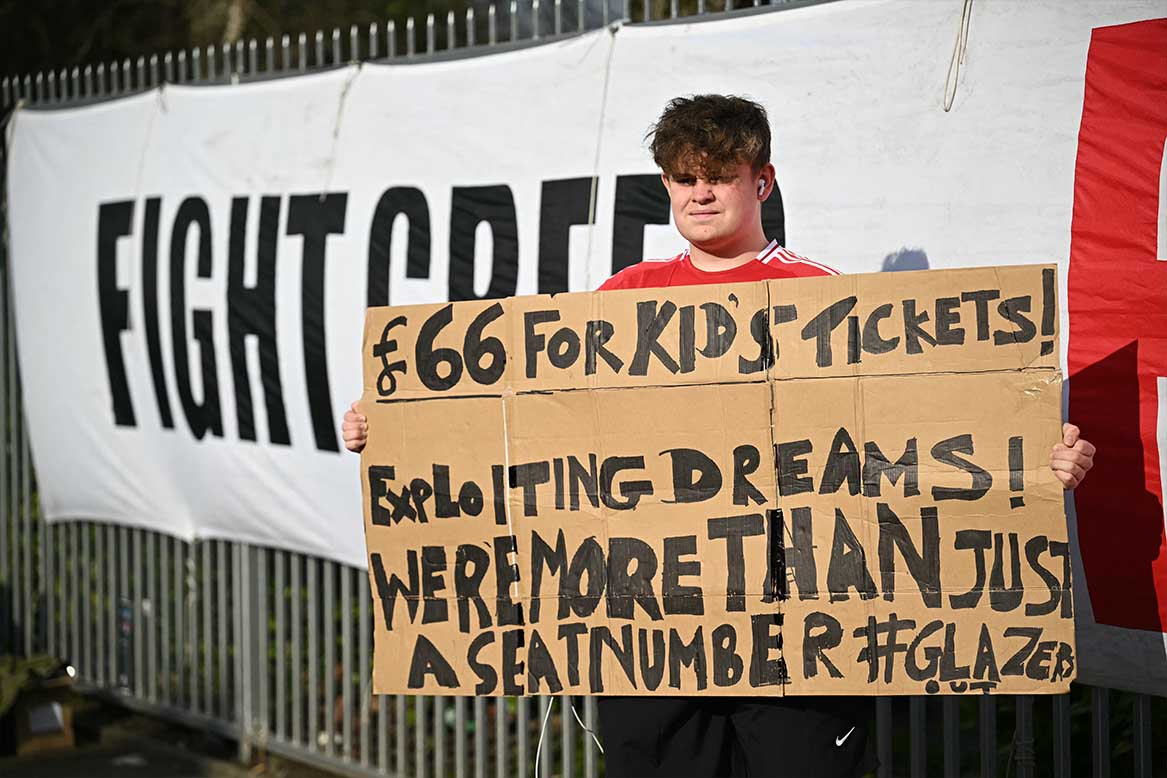 FIGHT GREED
£66 FOR KID'S TICKETS!
EXPLOITING DREAMS!
WERE MORE THAN JUST
A SEAT NUMBER #GLAZERS
OUT